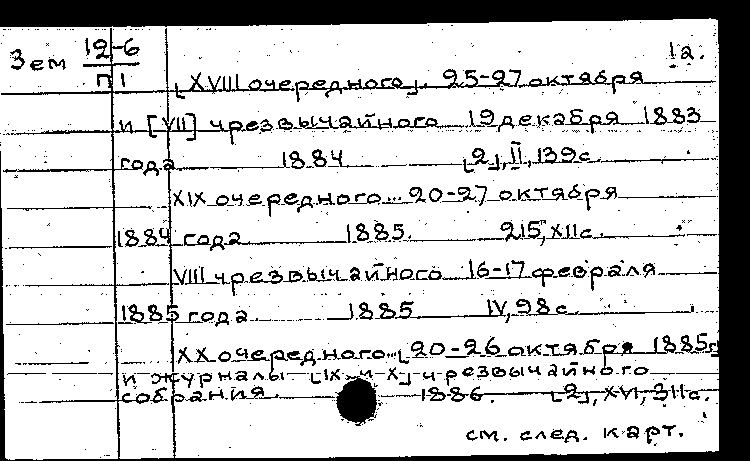 Зем 12-6 12.
П1 [XVIII очередного]. 25-27 октября
и [VII] чрезвычайного 19 декабря 1883
года 1884 [2], II, 139с.
XIX очередного... 20-27 октября
1884 года 1885. 215, XIIс.
VIII чрезвычайного 16-17 февраля
1885 года 1885 IV, 98с.
XX очередного... [20-26 октября 1885г]
и журналы [IX и X] чрезвычайного
собрания. 1886. [2], XVI, 311с.
см. след. карт.